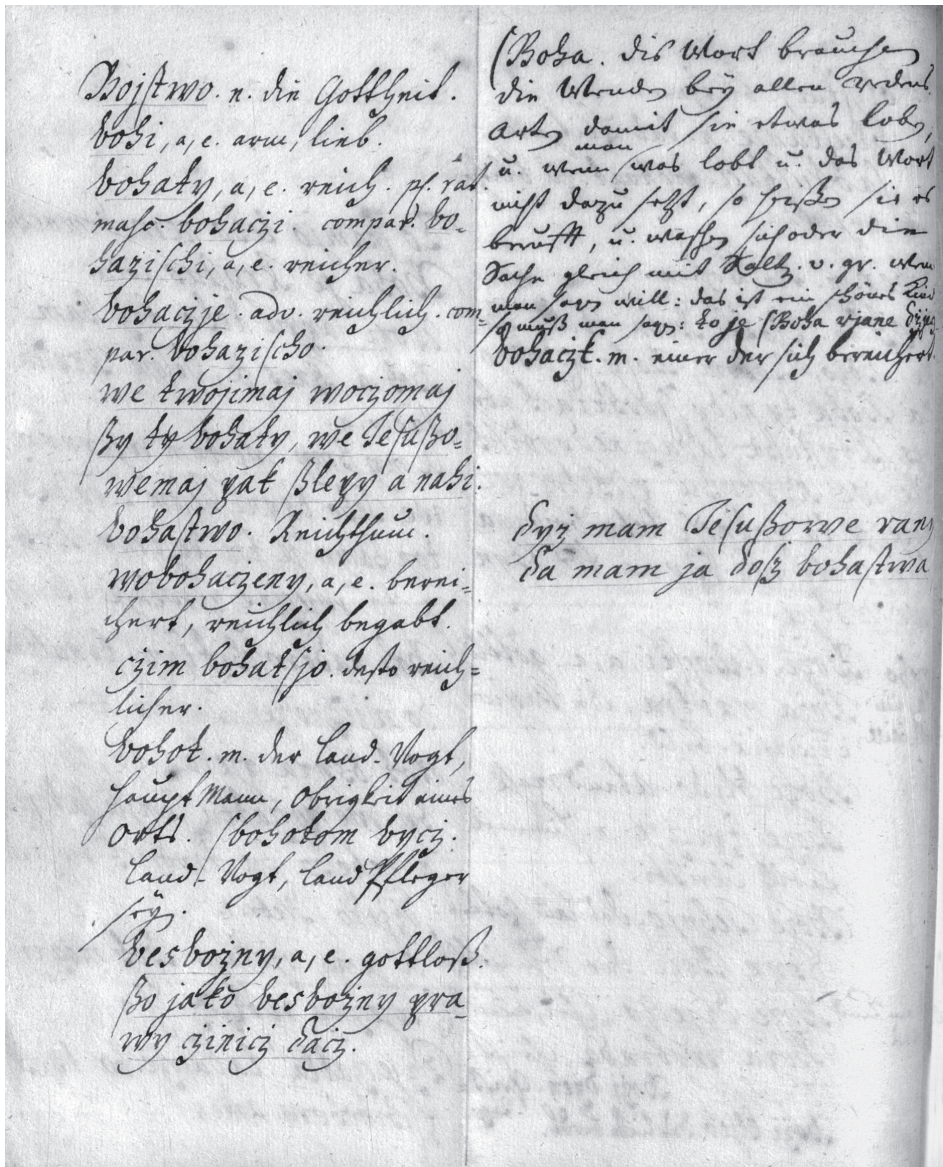 Bojstwo. n. die Gottheit.
bohi, a, e. arm, lieb.
bohaty, a, e. reich. pl. rat.
masc. bohaczi. compar. bo-
hazischi, a, e. reicher.
bohaczje. adv. reichlich. com-
par. bohazischo.
we twojimaj woczomaj
ßy ty bohaty, we Jesußo-
wemaj pak ßlepy a nahi.
bohastwo. Reichthum.
wobohaczeny, a, e. berei-
chert, reichlich begabt.
czim bohatsjo. desto reich-
licher.
bohot. m. der Land-Vogt,
Hauptmann, Obrigkeit eines
Orts. sbohotom bycz.
Land-Vogt, LandPfleger
seyn.
besbozny, a, e. gottloß.
ßo jako besbozny pra-
wy czinicz dacz.
sBoha. dis Wort brauchen
die Wenden bey allen redens
Arten damit sie etwas loben,
u. wenn man was lobt u. das Wort
nicht dazu setzt, so heißen sie es
berufft, u. waschen sich oder die
Sache gleich mit Saltz. v. gr. wenn
man sagen will: das ist ein schönes Kind
so muß man sagen: to je sBoha rjane
bohaczk. m. einer der sich bereichert.
dyz mam Jesußowe rany
da mam ja dosz bohastwa